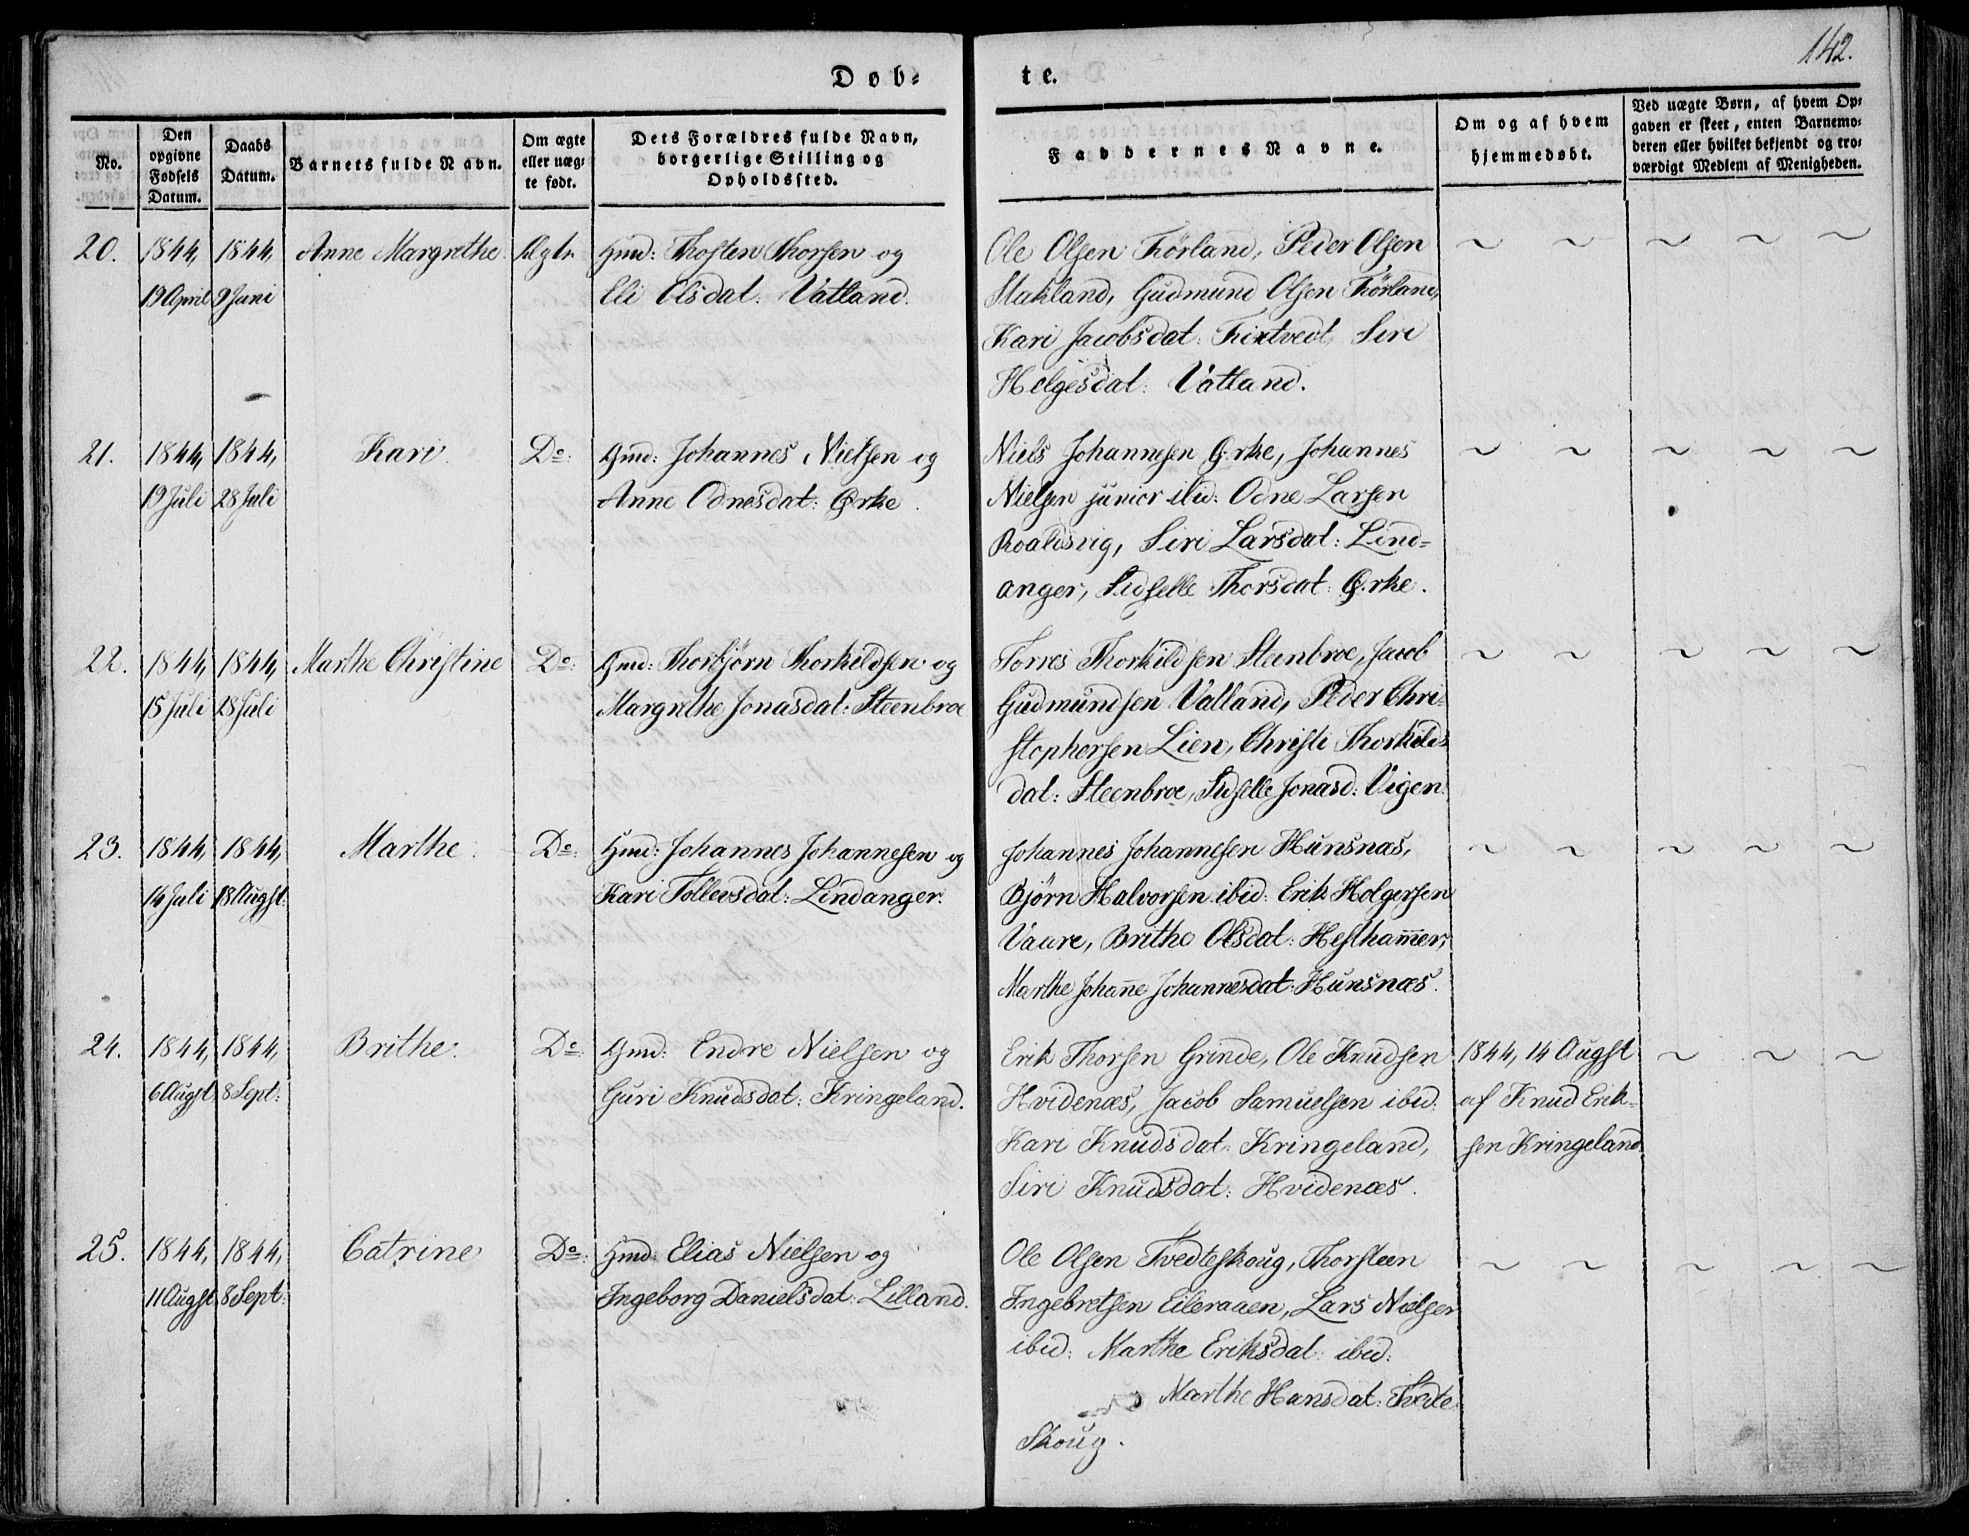 142.
Døb-
te.
No.
Den opgivne Fødsels Datum.
Daabs Datum.
Barnets fulde Navn.
Om ægte eller uægte født.
Dets Forældres fulde Navn, borgerlige Stilling og Opholdssted.
Faddernes Navne.
Om og af hvem hjemmedøbt.
Ved uægte Børn, af hvem Opgaven er skeet, enten Barnemoderen eller hvilket bekjendt og troværdigt Medlem af Menigheden.
20. 1844, 1844, Anne Margrethe. Ægte. Gmd: Thosten Thorsen og
19 April 9 Juni Eli Olsdat: Vatland.
Ole Olsen Førland, Peder Olsen
Stakland, Gudmund Olsen Førland,
Kari Jacobsdat: Siri
Helgesdat: Vatland.
21. 1844, 1844, Kari. Do: Gmd: Johannes Nielsen og
19 Juli 28 Juli Anne Odnesdat: Ørke.
Niels Johannesen Ørke, Johannes
Nielsen junior ibid: Odne Larsen
Roaldsvig, Siri Larsdat: Lind-
anger, Sidselle Thorsdat: Ørke.
22. 1844, 1844, Marthe Christine Do: Gmd: Thorbjørn Thorkildsen og
15 Juli 28 Juli Margrethe Jonasdat: Steenbroe
Torres Thorkildsen Steenbroe, Jacob
Gudmundsen Vatland, Peder Chri-
stophersen Lien, Christi Thorkilds-
dat: Steenbroe, Sidselle Jonasd: Vigen.
23. 1844, 1844, Marthe. Do: Gmd: Johannes Johannesen og
14 Juli 18 Augst: Kari Tollevsdat: Lindanger.
Johannes Johannesen Hunsnæs,
Bjørn Halvorsen ibid: Erik Holgersen
Vaare, Brithe Olsdat: Hesthammer,
Marthe Johanne Johannesdat: Hunsnæs.
24. 1844, 1844, Brithe. Do: Gmd: Endre Nielsen og
6 Augst 8 Sept: Guri Knudsdat: Kringeland.
Erik Thorsen Grinde, Ole Knudsen 1844, 14 Augst
Hvidenæs, Jacob Samuelsen ibid: af Knud Erik-
Kari Knudsdat: Kringeland, sen Kringeland.
Siri Knudsdat: Hvidenæs.
25. 1844, 1844, Catrine Do: Gmd: Elias Nielsen og
11 Augst 8 Sept: Ingeborg Danielsdat: Lilland.
Ole Olsen Tvedteskoug, Thorsteen
Ingebretsen Eileraaen, Lars Nielsen
ibid: Marthe Eriksdat: ibid:
Marthe Hansdat: Tvedte
Skoug.